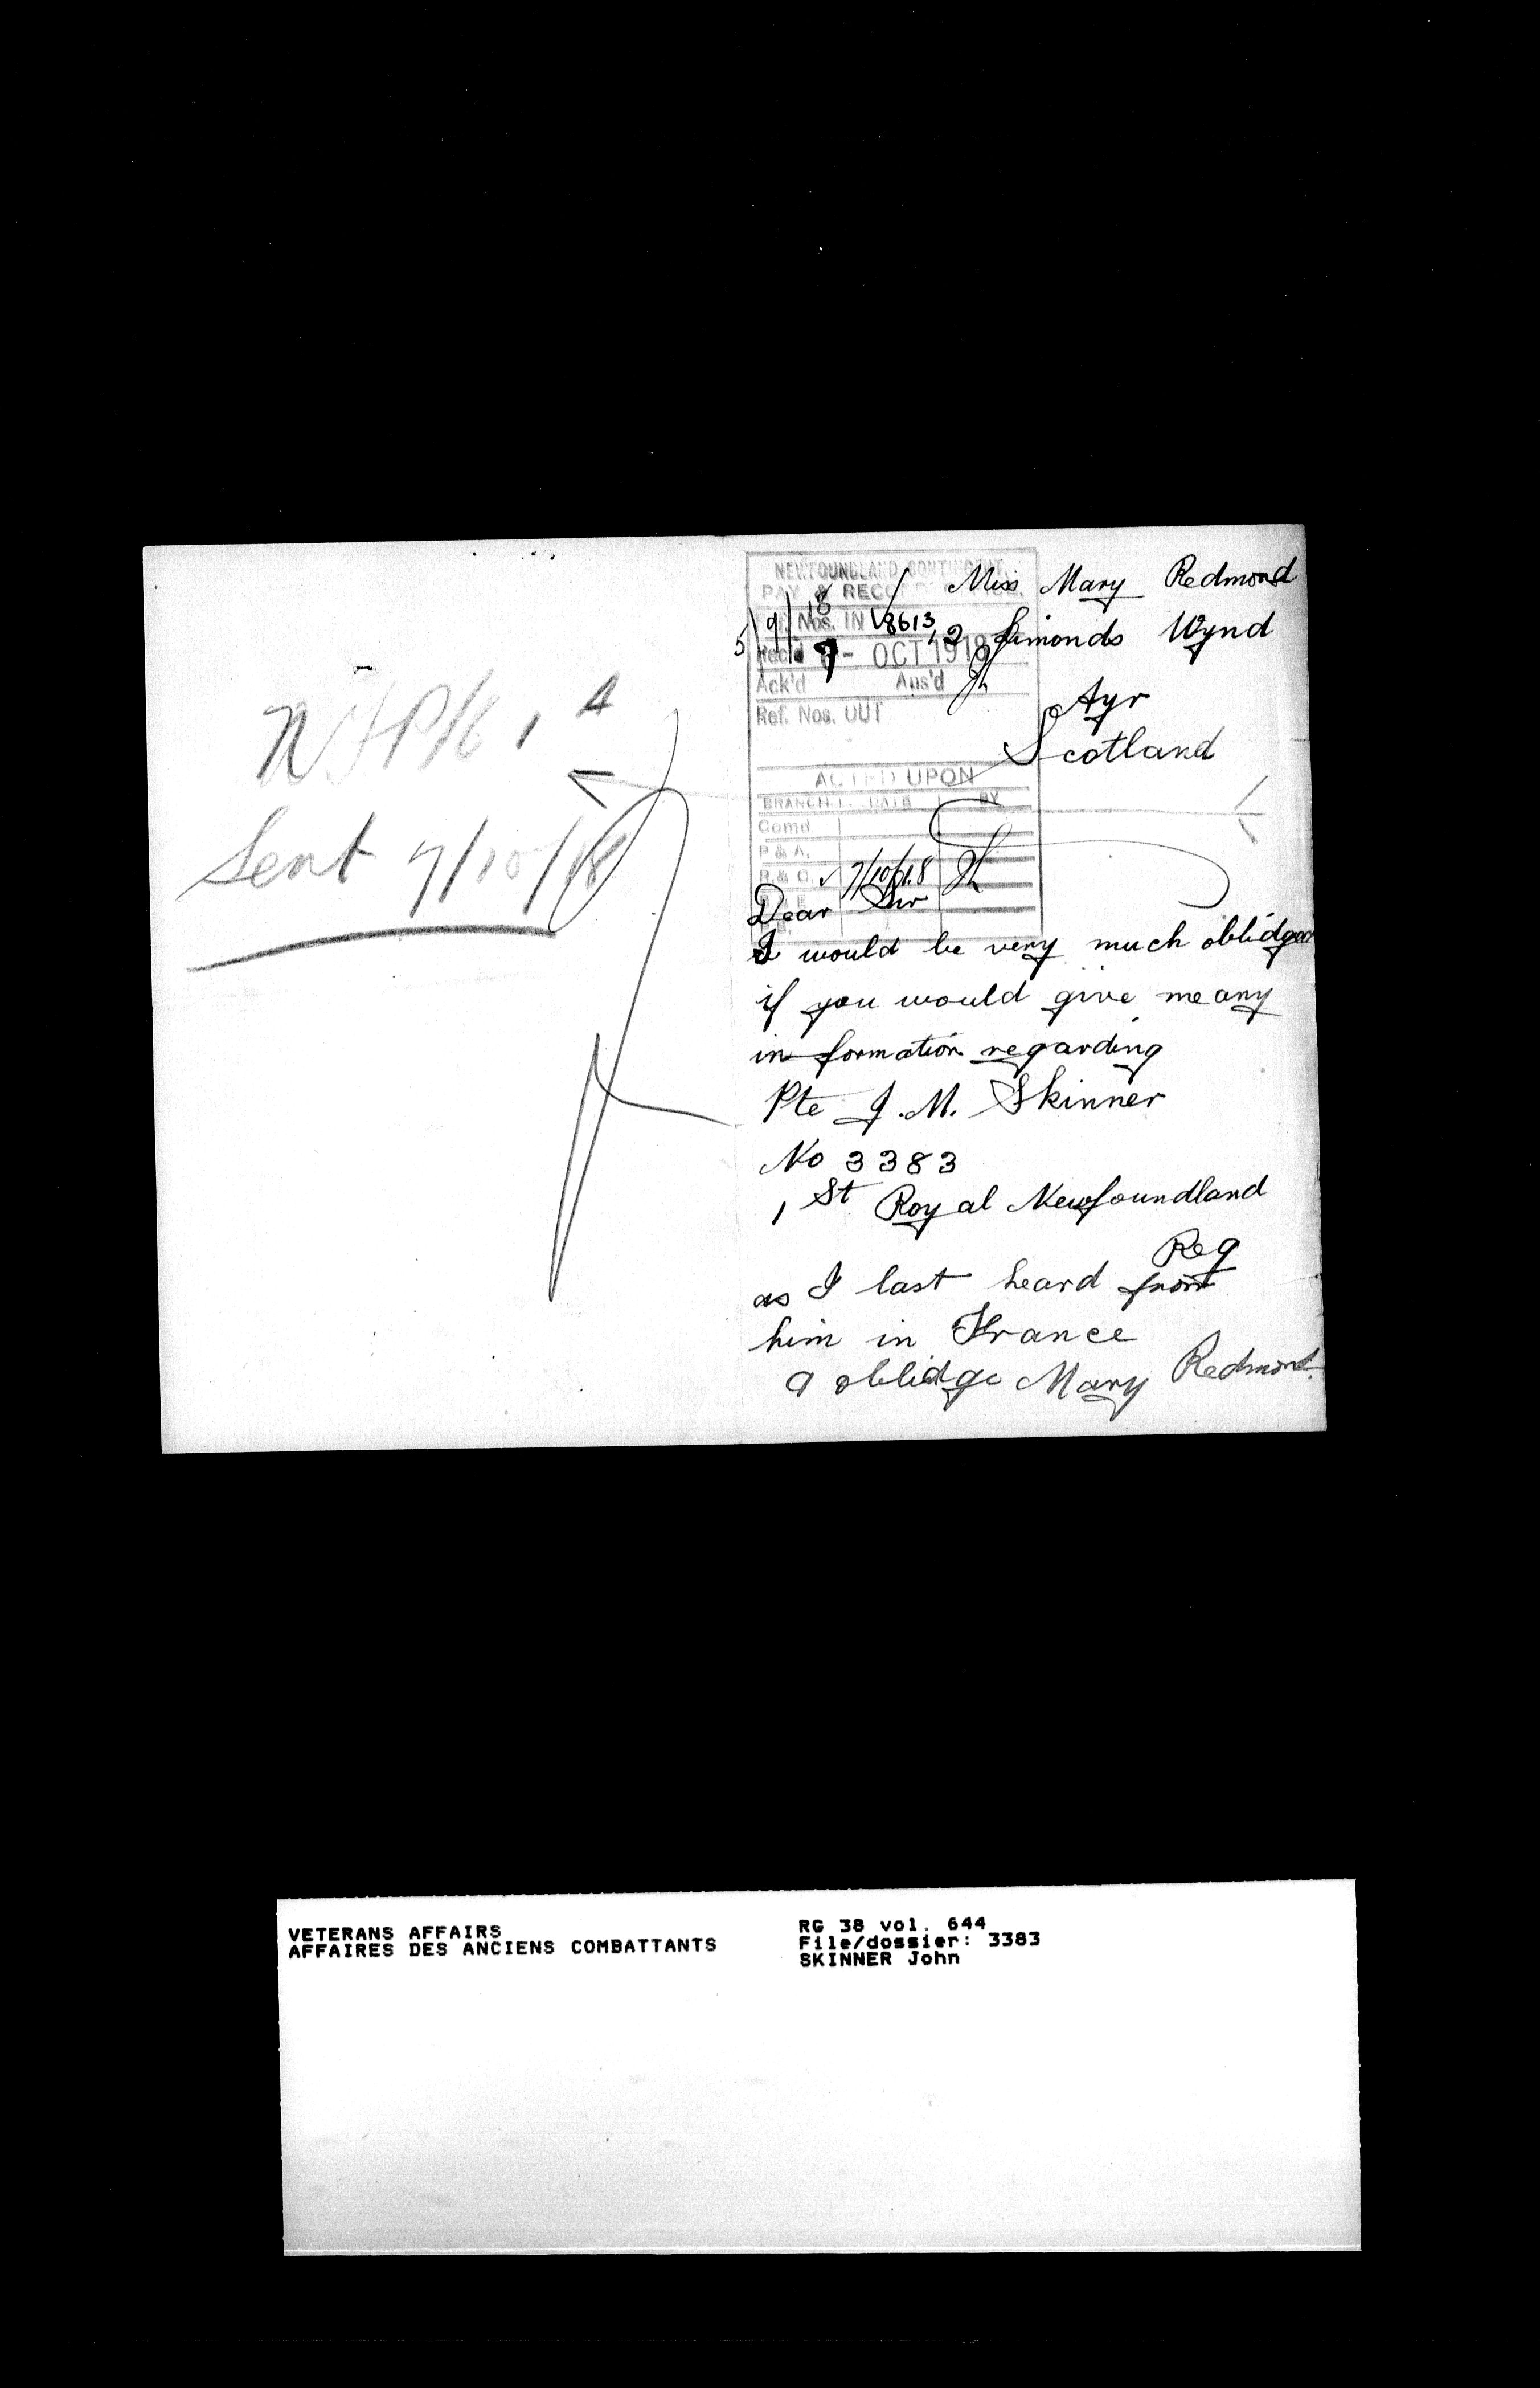 NEWFOUNDLAND CONTINGENT
PAY & RECORD OFFICE.
Ref. Nos. IN 18613
Rec'd 7 - OCT 1918
Ack'd Ans'd
Ref. Nos. OUT
ACTED UPON
BRANCH DATE BY
Comd
P & A.
R. & C. 7/10/18
Miss Mary Redmond
2 Limonds Wynd
Ayr
Scotland
Dear Sir
I would be very much oblidged
if you would give me any
in formation regarding
Pte J. M. Skinner
No 3383
1 St Royal Newfoundland
Reg
as I last heard from
him in France
a oblidge Mary Redmond.
Sent 7/10/18
VETERANS AFFAIRS
AFFAIRES DES ANCIENS COMBATTANTS
RG 38 vol. 644
File/dossier: 3383
SKINNER John